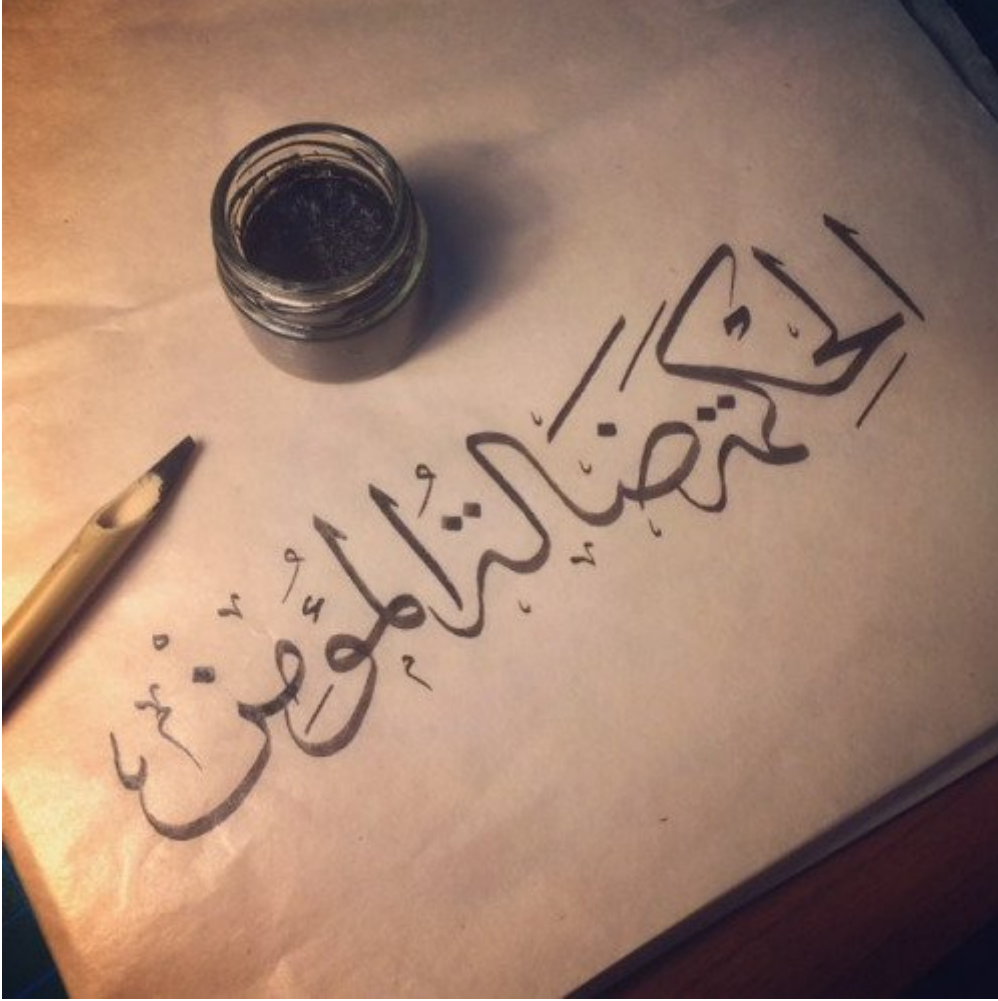 الحكمة ضالة المؤمن